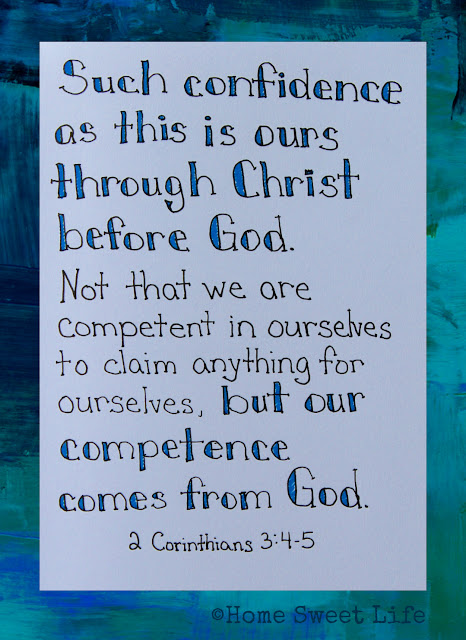 Such confidence
as this is ours
through Christ
before God.
Not that we are
competent in ourselves
to claim anything for
ourselves, but our
competence
comes from God.
2 Corinthians 3:4-5
©Home Sweet Life